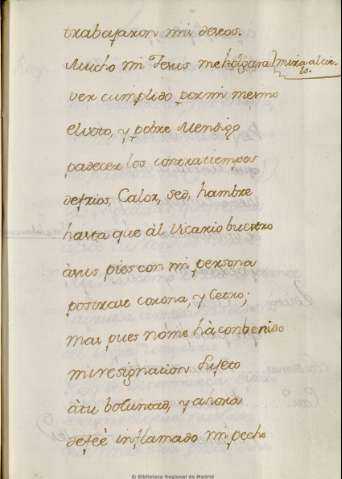 trabajaron mi deseos.
Mucho mi Jesus me holgara
mira al cie-
lo.
ver cumplido por mi mesmo
el voto, y pobre Mendigo
padecer los contratiempos
de frios, Calor, sed, hambre
hasta que àl Vicario buestro
à sus pies con mi persona
postrare corona, y Cetro;
mas pues nóme há conbenido
mi resignacion sujeto
à tu boluntad, y ahora
de feè inflamado mi pecho
© Biblioteca Regional de Madrid